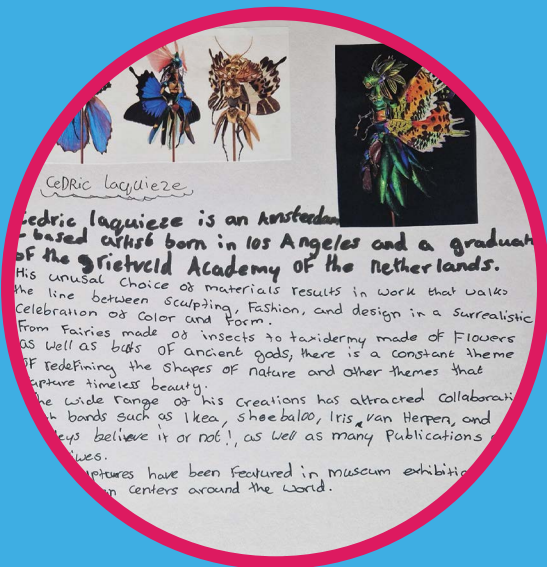 CeDRic laquieze
Cedric laquieze is an Amsterdam
- based artist born in los Angeles and a graduate
of the grietveld Academy of the netherlands.
His unusal choice of materials results in work that walks
the line between sculpting, Fashion, and design in a surrealistic
celebration of color and Form.
From Fairies made of insects to taxidermy made of Flowers
as well as busts of ancient gods, there is a constant theme
of redefining the shapes of nature and other themes that
capture timeless beauty.
The wide range of his creations has attracted collaborati
bands such as Ikea, shoebaloo, Iris van Herpen, and
believe it or not!, as well as many Publications
have been Featured in museum exhibitio
centers around the world.